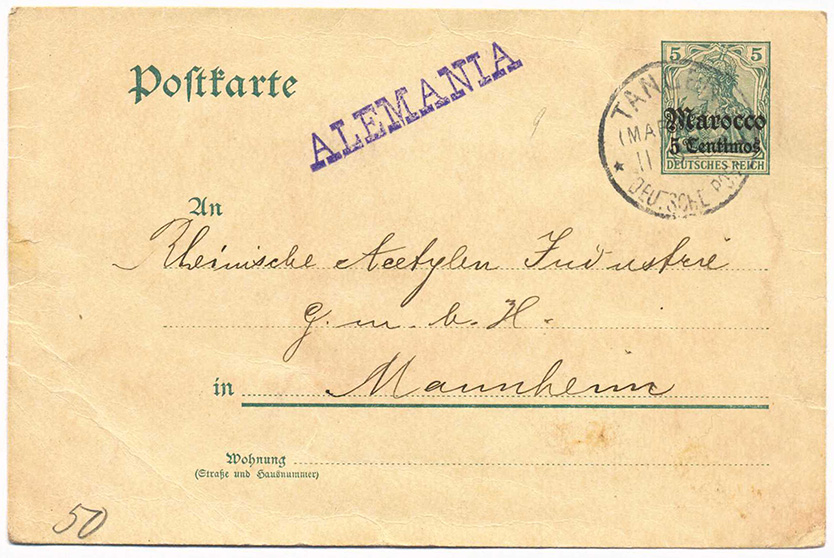 Postkarte
ALEMANIA
5 5
Marocco
5 Centimos
DEUTSCHES REICH
TANGER
(MAR
11
* DEUTSCHE POST
An
Rheinische Acetylen Industrie
G. m. b. H.
in Mannheim
Wohnung
(Straße und Hausnummer)
50